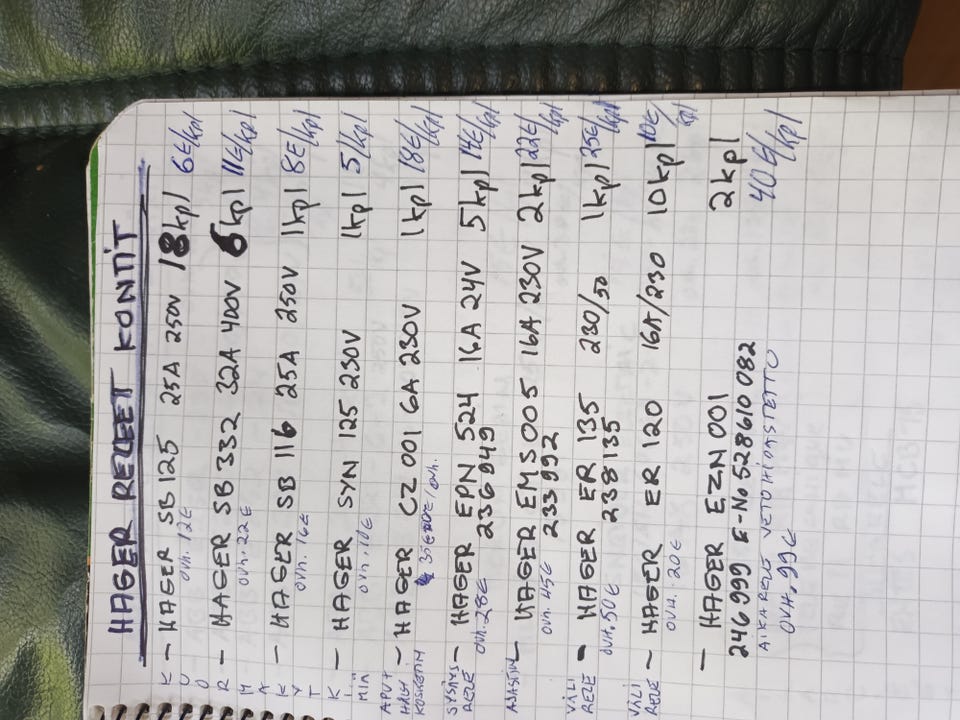 HAGER RELEET KONTIT
KUORMAKYTKIMIÄ
— HAGER SB 125 25A 250V 18kpl 6E/kpl
ovh. 12E
— HAGER SB 332 32A 400V 6kpl 11E/kpl
ovh. 22E
— HAGER SB 116 25A 250V 1kpl 8E/kpl
ovh. 16E
— HAGER SYN 125 230V 1kpl 5/kpl
ovh. 10E
APUT
— HAGER CZ 001 6A 230V 1kpl 18E/kpl
KOSKETIN 35E /ovh.
SYSÄYS RELE — HAGER EPN 524 16A 24V 5kpl 14E/kpl
ovh. 28E 236949
— HAGER EMS 005 16A 230V 2kpl 22E/kpl
ovh. 45E 233992
VÄLI RELE — HAGER ER 135 230/50 1kpl 25E/kpl
ovh. 50E 238135
VÄLI RELE — HAGER ER 120 16A/230 10kpl 10E/kpl
OVH. 20E
— HAGER EZN 001 2kpl
246999 E-No 528610082 40E/kpl
AIKARELE VETOHIDASTETTU
OVH. 99E